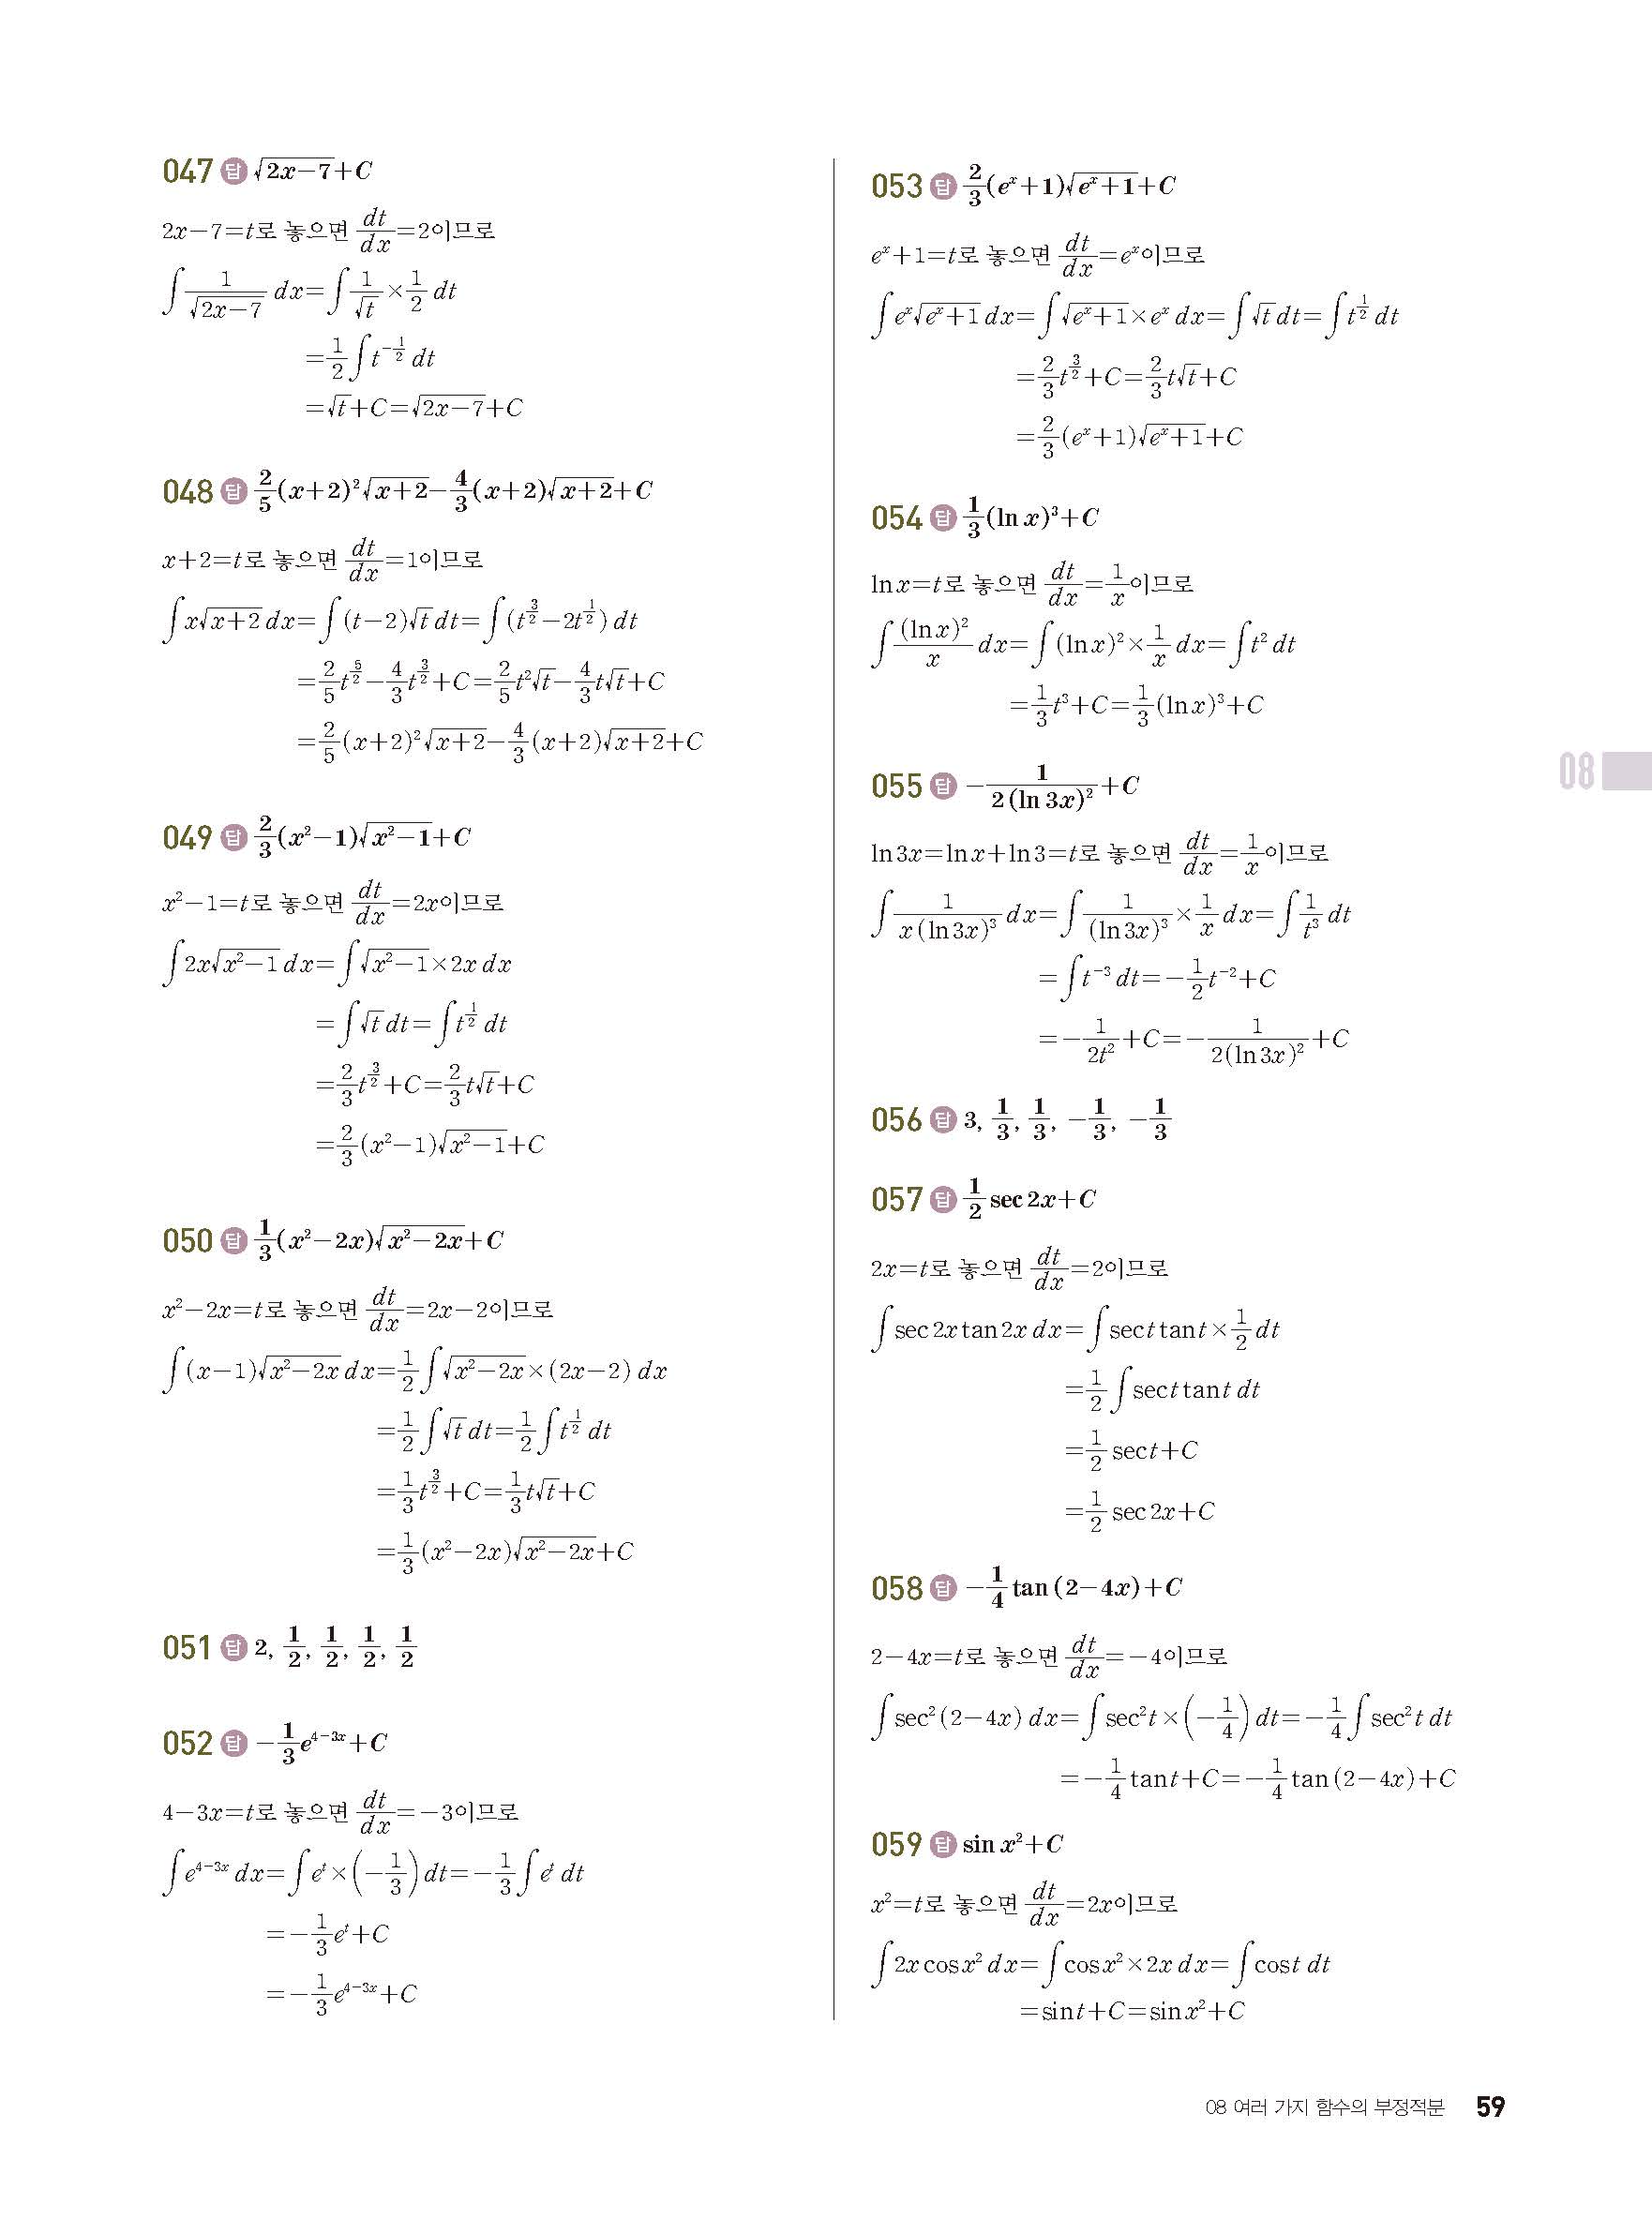 047 답 √(2x−7)+C
2x−7=t로 놓으면 dt/dx=2이므로
∫ 1/√(2x−7) dx=∫ 1/√t × 1/2 dt
=1/2 ∫ t^(−1/2) dt
=√t+C=√(2x−7)+C
048 답 2/5(x+2)²√(x+2)−4/3(x+2)√(x+2)+C
x+2=t로 놓으면 dt/dx=1이므로
∫ x√(x+2) dx=∫ (t−2)√t dt=∫ (t^(3/2)−2t^(1/2)) dt
=2/5 t^(5/2)−4/3 t^(3/2)+C=2/5 t²√t−4/3 t√t+C
=2/5(x+2)²√(x+2)−4/3(x+2)√(x+2)+C
049 답 2/3(x²−1)√(x²−1)+C
x²−1=t로 놓으면 dt/dx=2x이므로
∫ 2x√(x²−1) dx=∫ √(x²−1)×2x dx
=∫ √t dt=∫ t^(1/2) dt
=2/3 t^(3/2)+C=2/3 t√t+C
=2/3(x²−1)√(x²−1)+C
050 답 1/3(x²−2x)√(x²−2x)+C
x²−2x=t로 놓으면 dt/dx=2x−2이므로
∫ (x−1)√(x²−2x) dx=1/2 ∫ √(x²−2x)×(2x−2) dx
=1/2 ∫ √t dt=1/2 ∫ t^(1/2) dt
=1/3 t^(3/2)+C=1/3 t√t+C
=1/3(x²−2x)√(x²−2x)+C
051 답 2, 1/2, 1/2, 1/2, 1/2
052 답 −1/3 e^(4−3x)+C
4−3x=t로 놓으면 dt/dx=−3이므로
∫ e^(4−3x) dx=∫ e^t×(−1/3) dt=−1/3 ∫ e^t dt
=−1/3 e^t+C
=−1/3 e^(4−3x)+C
053 답 2/3(e^x+1)√(e^x+1)+C
e^x+1=t로 놓으면 dt/dx=e^x이므로
∫ e^x√(e^x+1) dx=∫ √(e^x+1)×e^x dx=∫ √t dt=∫ t^(1/2) dt
=2/3 t^(3/2)+C=2/3 t√t+C
=2/3(e^x+1)√(e^x+1)+C
054 답 1/3(ln x)³+C
ln x=t로 놓으면 dt/dx=1/x이므로
∫ (ln x)²/x dx=∫ (ln x)²×1/x dx=∫ t² dt
=1/3 t³+C=1/3(ln x)³+C
055 답 −1/(2(ln 3x)²)+C
ln 3x=ln x+ln 3=t로 놓으면 dt/dx=1/x이므로
∫ 1/(x(ln 3x)³) dx=∫ 1/(ln 3x)³×1/x dx=∫ 1/t³ dt
=∫ t^(−3) dt=−1/2 t^(−2)+C
=−1/(2t²)+C=−1/(2(ln 3x)²)+C
056 답 3, 1/3, 1/3, −1/3, −1/3
057 답 1/2 sec 2x+C
2x=t로 놓으면 dt/dx=2이므로
∫ sec 2x tan 2x dx=∫ sec t tan t×1/2 dt
=1/2 ∫ sec t tan t dt
=1/2 sec t+C
=1/2 sec 2x+C
058 답 −1/4 tan (2−4x)+C
2−4x=t로 놓으면 dt/dx=−4이므로
∫ sec²(2−4x) dx=∫ sec² t×(−1/4) dt=−1/4 ∫ sec² t dt
=−1/4 tan t+C=−1/4 tan (2−4x)+C
059 답 sin x²+C
x²=t로 놓으면 dt/dx=2x이므로
∫ 2x cos x² dx=∫ cos x²×2x dx=∫ cos t dt
=sin t+C=sin x²+C
08
08 여러 가지 함수의 부정적분 59